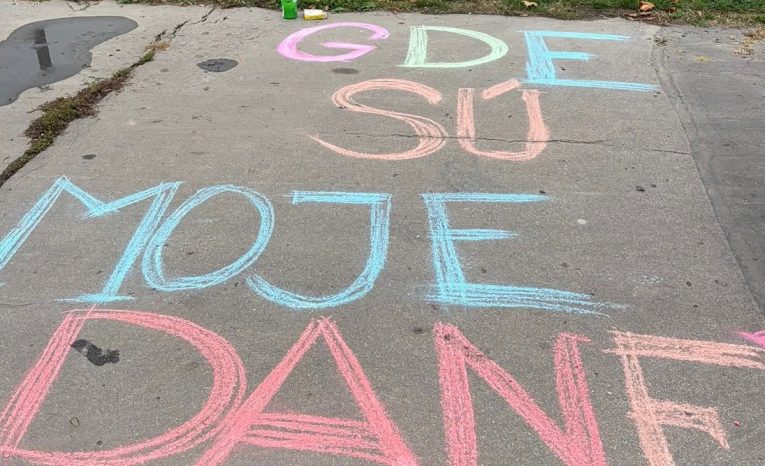 GDE
SÚ
MOJE
DANE